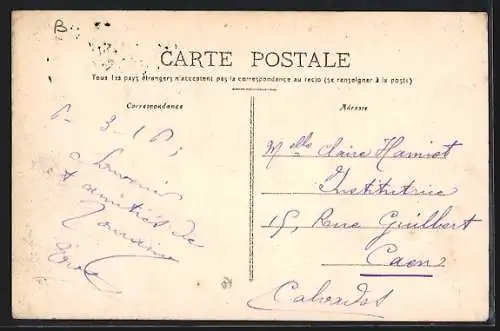 B
CARTE POSTALE
Tous les pays étrangers n'acceptent pas la correspondance au recto (se renseigner à la poste)
Correspondance
Adresse
Souvenir
et amitiés de
Melle Claire Hamiot
Institutrice
15, Rue Guilbert
Caen
Calvados